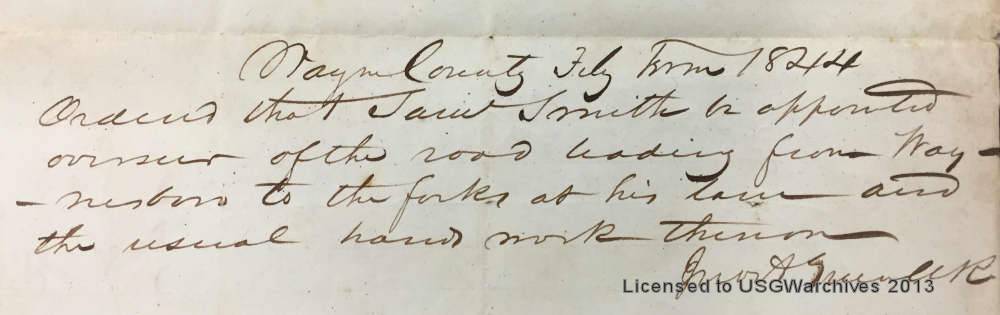 Wayne County Feby Term 1844
Ordered that Saml Smith be appointed
overseer of the road leading from Way-
-nesboro to the forks at his lane and
the usual hands work thereon
Jno A
Licensed to USGWarchives 2013